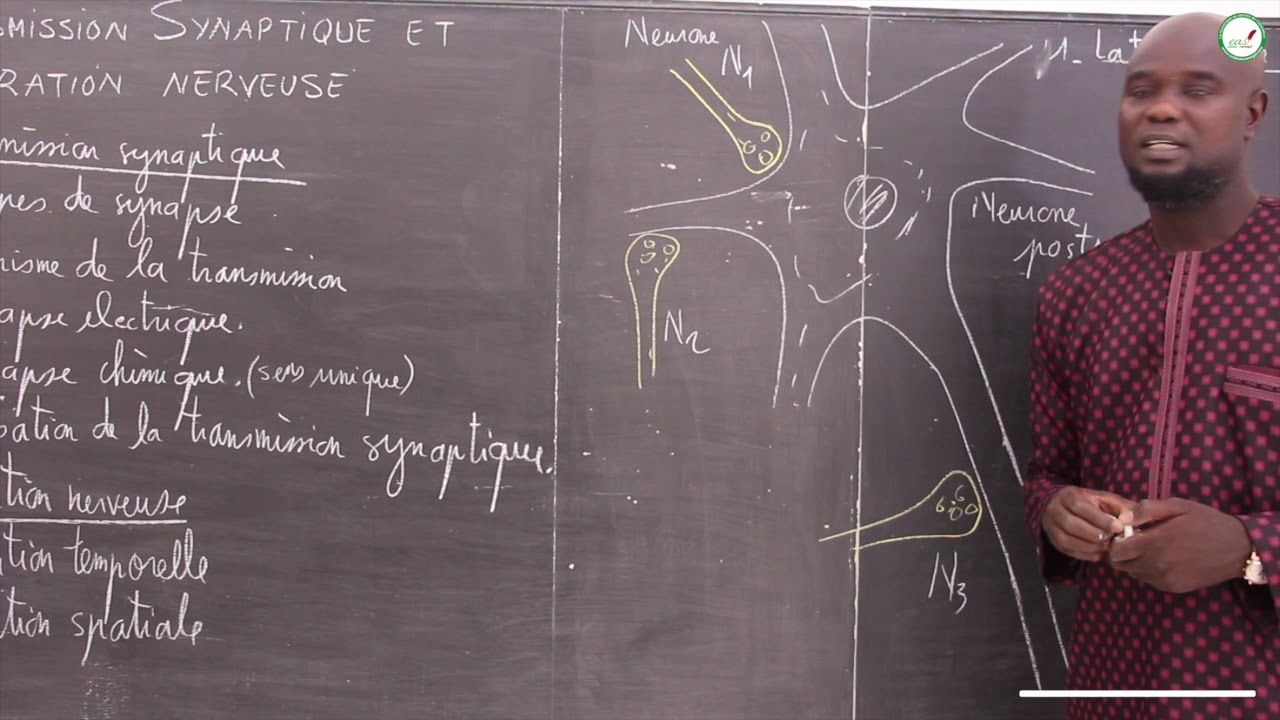 MISSION SYNAPTIQUE ET
RATION NERVEUSE
mission synaptique
pes de synapse
nisme de la transmission
apse électrique.
apse chimique. (sens unique)
sation de la transmission synaptique.
tion nerveuse
tion temporelle
tion spatiale
Neurone
N1
N2
N3
Neurone
post
1- La t
eas